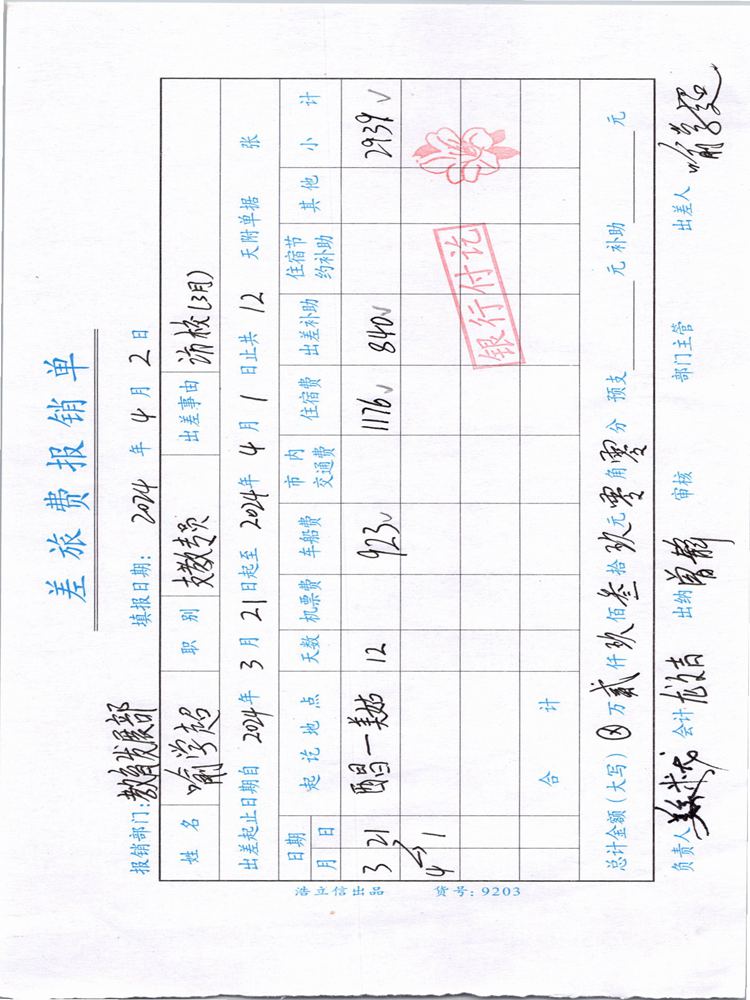 差旅费报销单
报销部门:教育发展部 填报日期: 2024 年 4 月 2 日
姓名 喻学超 职别 支教专员 出差事由 访校(3月)
出差起止日期自 2024年 3 月 21 日起至 2024年 4 月 1 日止共 12 天附单据 张
日期 起讫地点 天数 机票费 车船费 市内交通费 住宿费 出差补助 住宿节约补助 其他 小计
月 日
3 21 西昌—美姑 12 923 1176 840 2939
4 1
银行付讫
合计
总计金额(大写) 万 贰 仟 玖 佰 叁 拾 玖 元 零 角 零 分 预支 元 补助 元
负责人 会计 出纳 曾静 审核 部门主管 出差人 喻学超
浩立信出品 货号: 9203